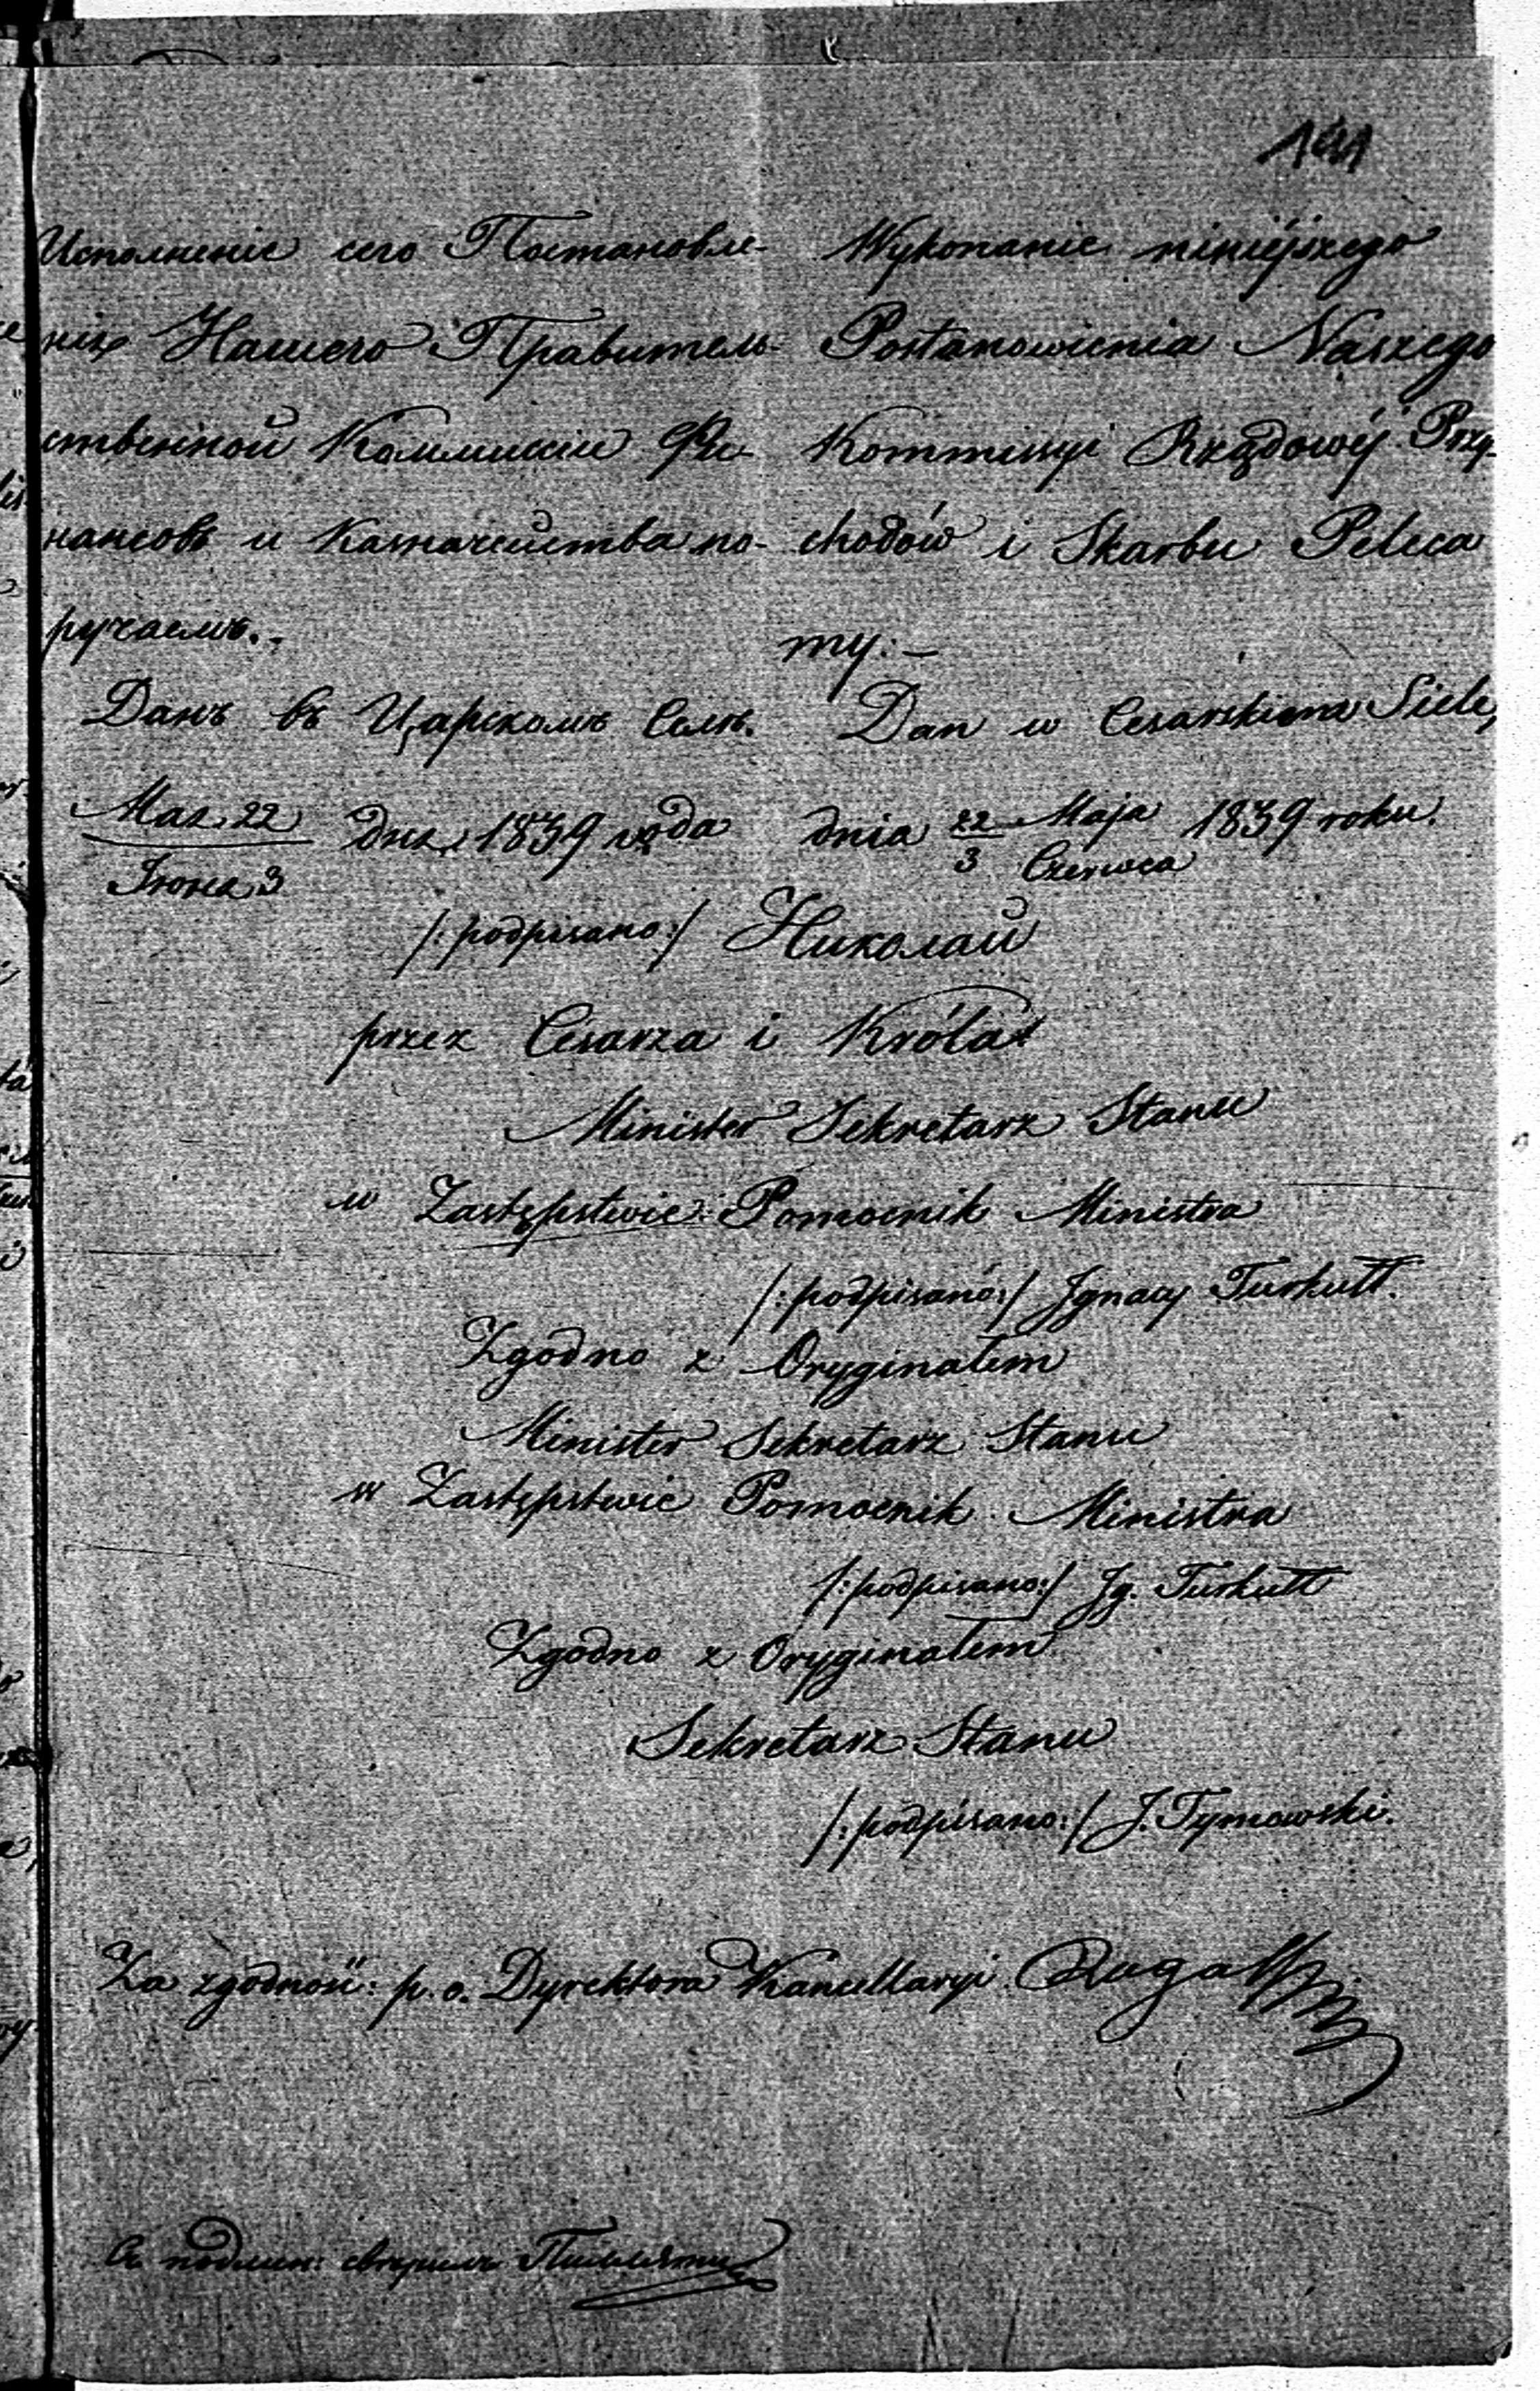 141
Исполненіе сего Постановле-
нія Нашего Правитель-
ственной Коммиссіи Фи-
нансовъ и Казначейства по-
ручаемъ.
Данъ въ Царскомъ Селѣ.
Мая 22 / Іюня 3 дня 1839 года
Wykonanie niniéjszego
Postanowienia Naszego
Kommissyi Rządowéj Przy-
chodów i Skarbu Poleca
my:—
Dan w Cesarskiem Siele,
dnia 22 Maja / 3 Czerwca 1839 roku.
/:podpisano:/ Николай
przez Cesarza i Króla
Minister Sekretarz Stanu
w Zastępstwie Pomocnik Ministra
/:podpisano:/ Ignacy Turkułł.
Zgodno z Oryginałem
Minister Sekretarz Stanu
w Zastępstwie Pomocnik Ministra
/:podpisano:/ Ig. Turkułł
Zgodno z Oryginałem
Sekretarz Stanu
/:podpisano:/ J. Tymowski.
Za zgodność: p. o. Dyrektora Kancellaryi
Съ подлин: